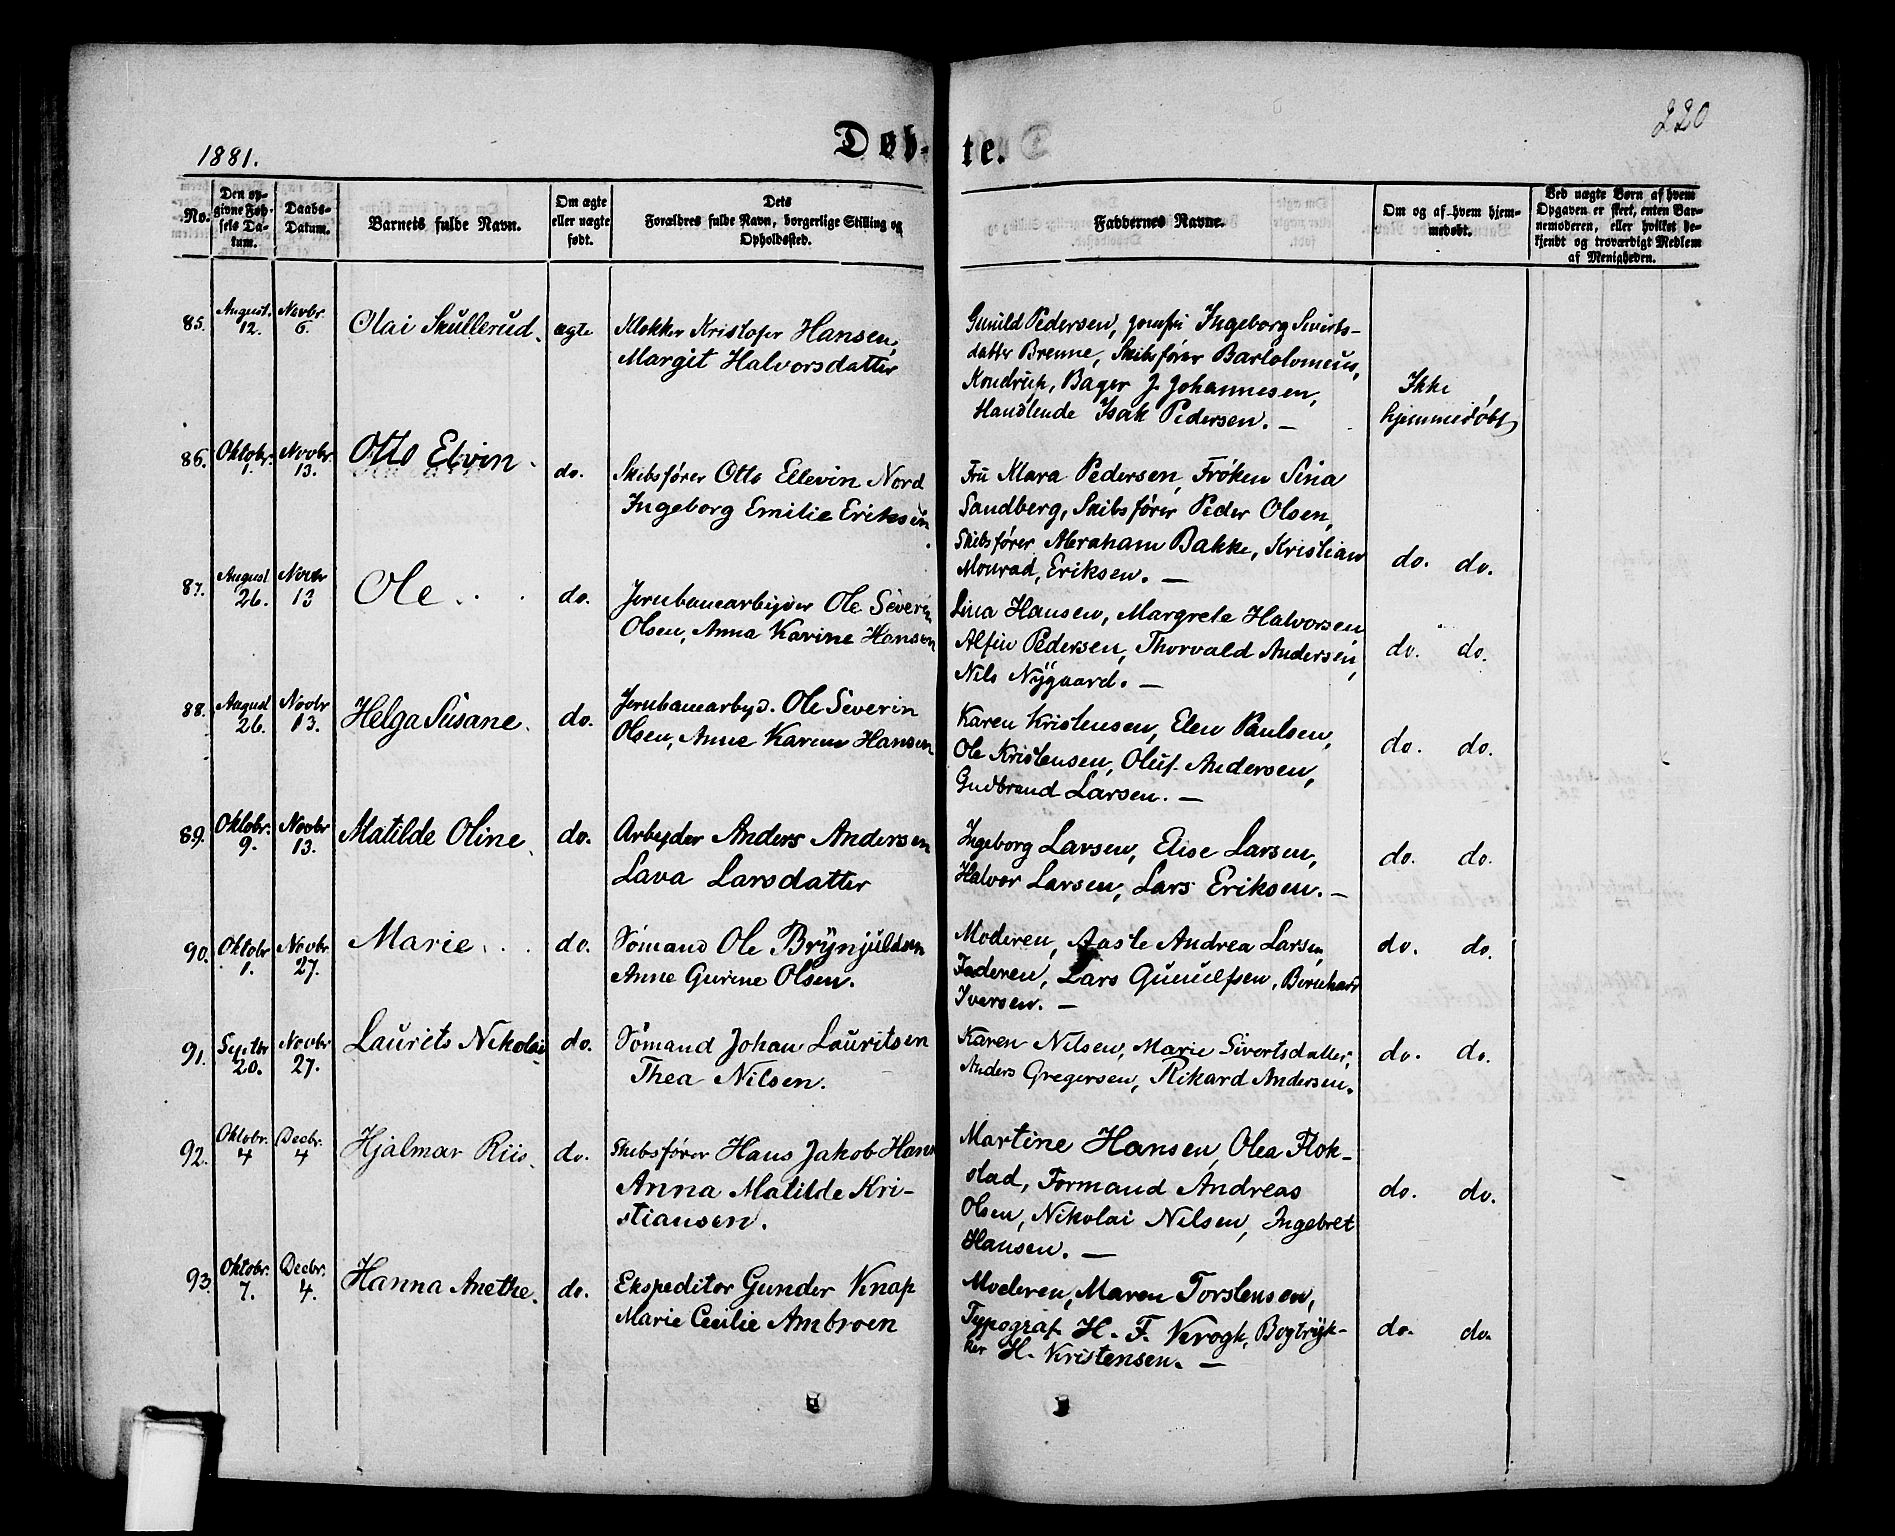 220
1881.
Døb-te.
No.
Den opgivne Fødsels Datum.
Daabs-Datum.
Barnets fulde Navn.
Om ægte eller uægte født.
Dets Forældres fulde Navn, borgerlige Stilling og Opholdssted.
Faddernes Navne.
Om og af hvem hjemmedøbt.
Ved uægte Børn af hvem Opgaven er skeet, enten Barnemoderen, eller hvilket bekjendt og troværdigt Medlem af Menigheden.
85. August. 12. Novbr. 6. Olai Skullerud. ægte
Klokker Kristofer Hansen,
Margit Halvorsdatter
Gunild Pedersen, Ingeborg Siverts-
datter Brenne, Skibsfører Bartolomeus,
Kondrup, Bager J. Johannesen,
Handlende Isak Pedersen. —
Ikke
hjemmedøbt
86. Oktobr. 1. Novbr. 13. Otto Elvin. do.
Skibsfører Otto Ellevin Nord
Ingeborg Emilie Eriksen
Fru Klara Pedersen, Frøken Sina
Sandberg, Skibsfører Peder Olsen,
Skibsfører Abraham Bakke, Kristian
Monrad, Eriksen. —
do. do.
87. August 26. Novbr 13 Ole. do.
Jernbanearbeider Ole Severin
Olsen, Anna Karine Hansen
Lina Hansen, Margrete Halvorsen,
Alfin Pedersen, Thorvald Andersen,
Nils Nygaard. —
do. do.
88. August 26. Novbr 13. Helga Susane. do.
Jernbanearbd. Ole Severin
Olsen, Anne Karine Hansen
Karen Kristensen, Elen Paulsen,
Ole Kristensen, Oluf Andersen,
Gudbrand Larsen. —
do. do.
89. Oktobr. 9. Novbr 13. Matilde Oline. do.
Arbeyder Anders Andersen
Lava Larsdatter
Ingeborg Larsen, Elise Larsen,
Halvor Larsen, Lars Eriksen. —
do. do.
90. Oktobr 1. Novbr. 27. Marie. do.
Sømand Ole Brynjuldsen
Anne Gurine Olsen.
Moderen, Aaste Andrea Larsen,
Faderen, Lars Gunulfsen, Bernhard
Iversen. —
do. do.
91. Septbr 20. Novbr 27. Laurits Nikolai do.
Sømand Johan Lauritsen
Thea Nilsen.
Karen Nilsen, Marie Sivertsdatter,
Anders Gregersen, Rikard Andersen.
do. do.
92. Oktobr. 4 Decbr. 4 Hjalmar Riis. do.
Skibsfører Hans Jakob Hans
Anna Matilde Kri-
stiansen.
Martine Hansen, Olea Flok-
stad, Formand Andreas
Olsen, Nikolai Nilsen, Ingebret
Hansen. —
do. do.
93. Oktobr. 7. Decbr. 4. Hanna Anethe. do.
Ekspeditor Gunder Knap
Marie Cecilie Ambroen
Moderen, Maren Torstensen,
Typograf H. F. Krogh, Bogtryk-
ker H. Kristensen. —
do. do.